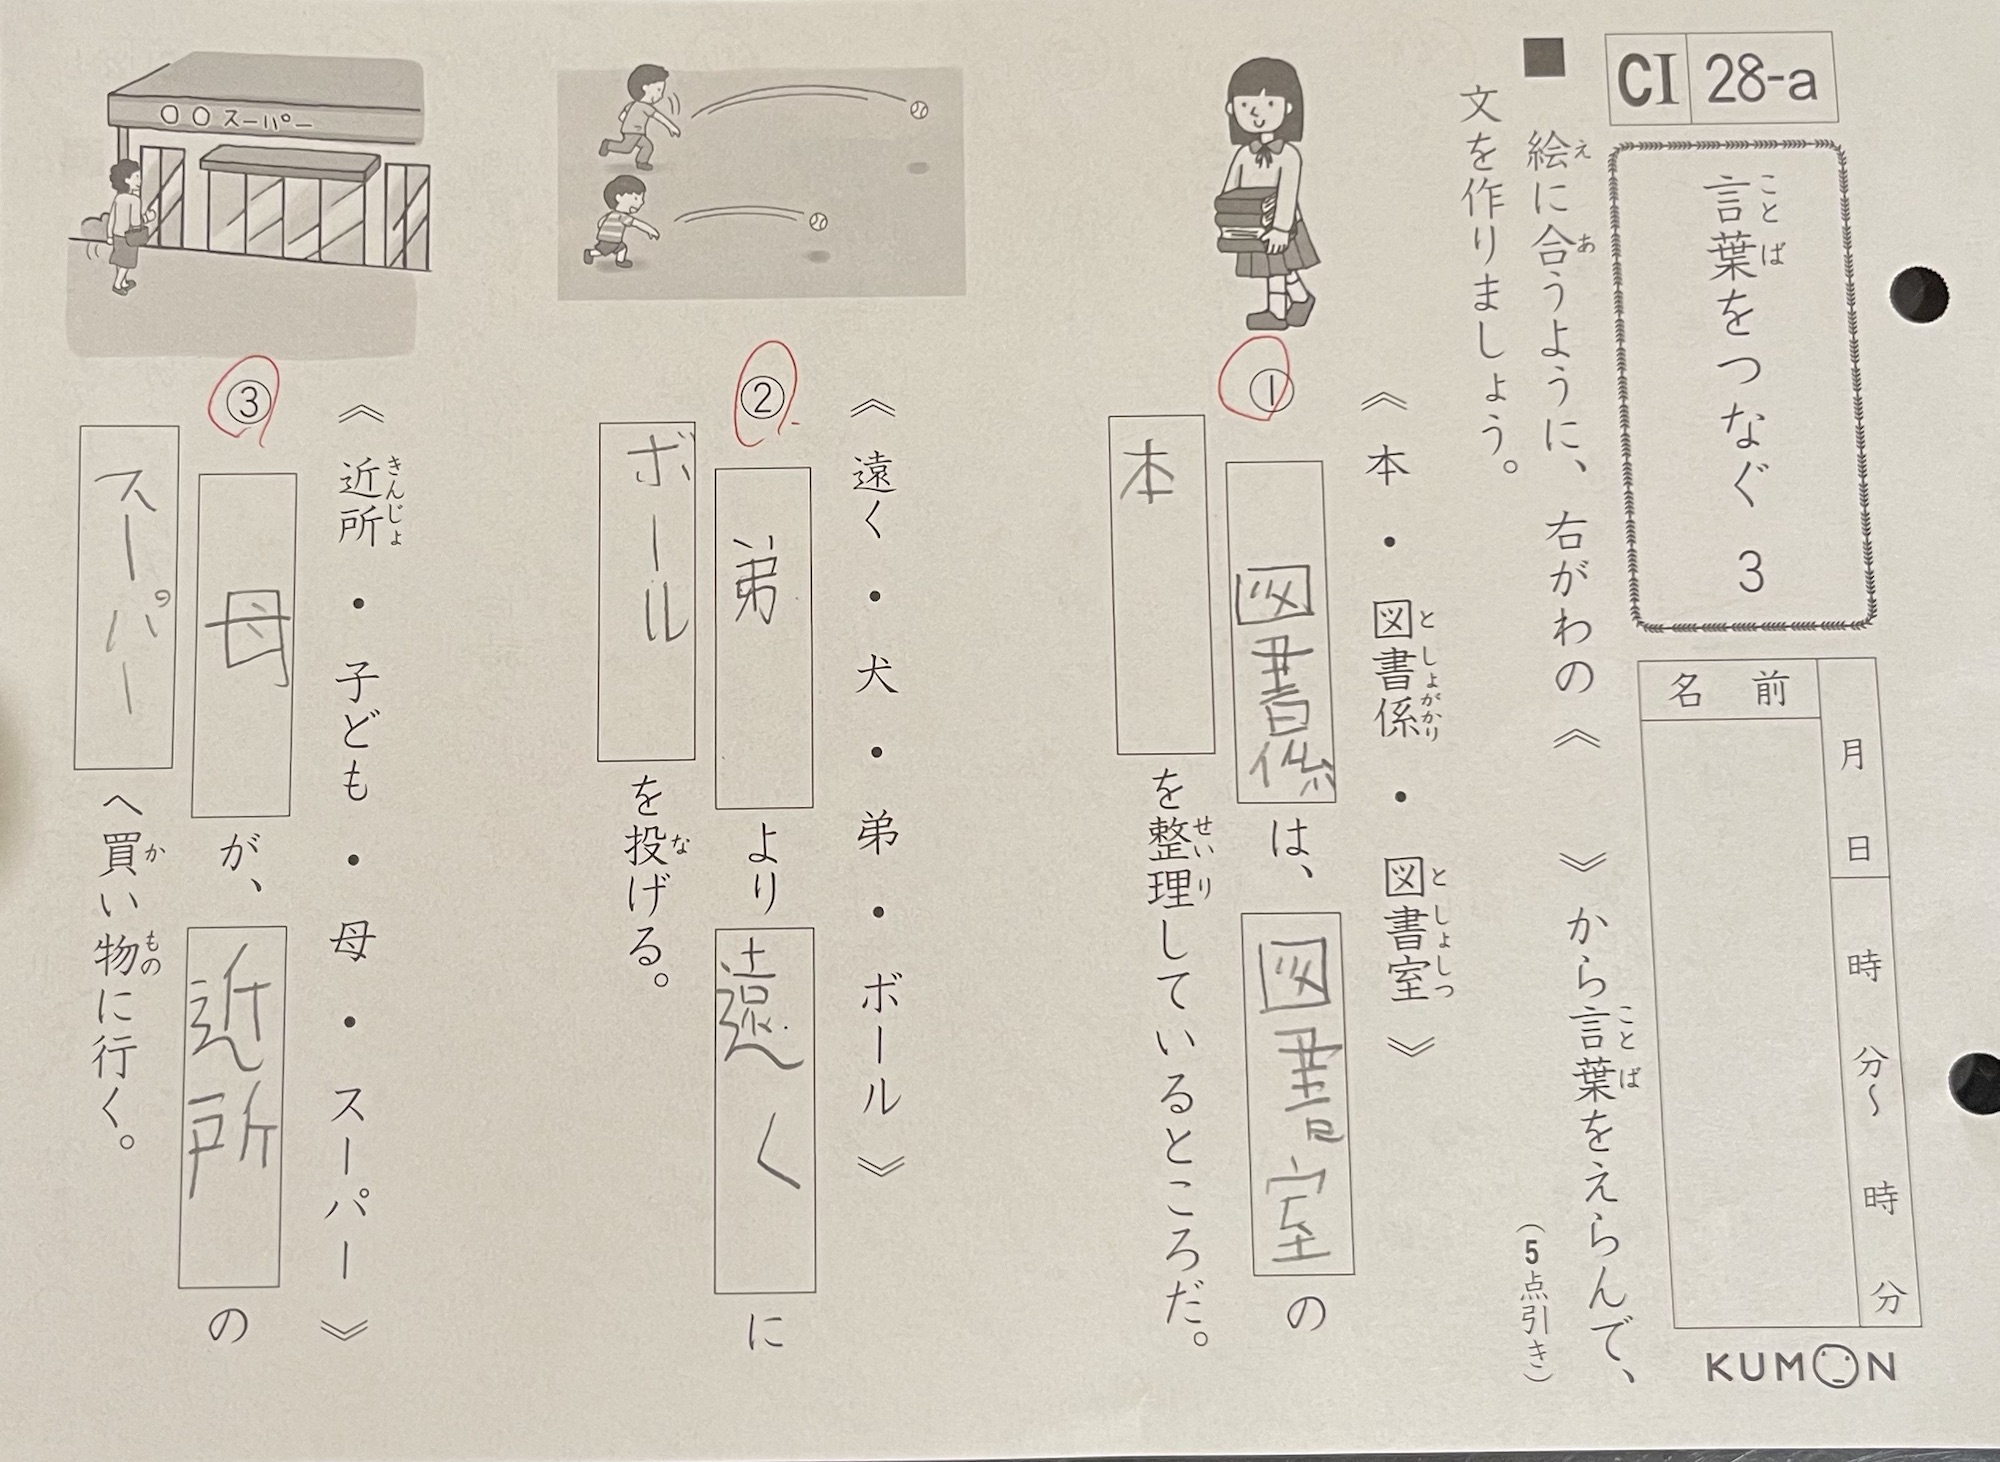 CI 28-a
言葉をつなぐ 3
ことば
月 日 時 分～ 時 分
名前
KUMON
■ 絵に合うように、右がわの《 》から言葉をえらんで、
え あ ことば
文を作りましょう。
(5点引き)
《 本 ・ 図書係 ・ 図書室 》
としょがかり としょしつ
① 図書係 は、 図書室 の
本 を整理しているところだ。
せいり
《 遠く ・ 犬 ・ 弟 ・ ボール 》
② 弟 より 遠く に
ボール を投げる。
な
《 近所 ・ 子ども ・ 母 ・ スーパー 》
きんじょ
③ 母 が、 近所 の
スーパー へ買い物に行く。
か もの
〇〇スーパー